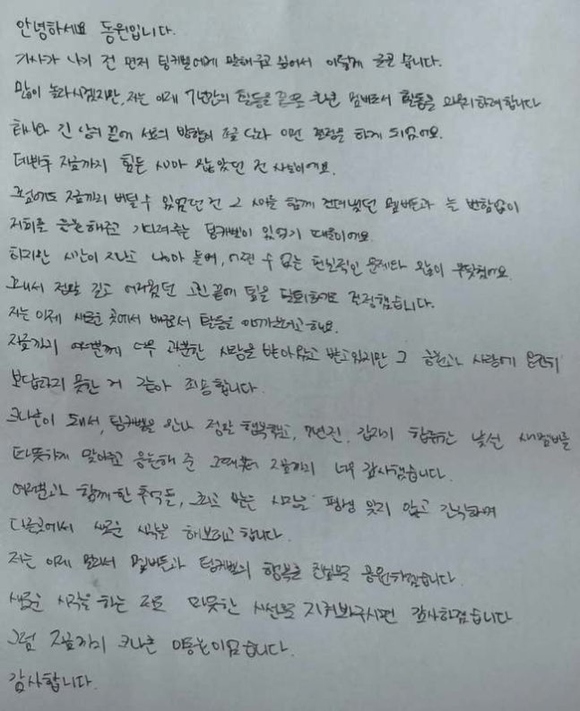 안녕하세요 동원입니다.
기사가 나기 전 먼저 팅커벨에게 말해주고 싶어서 이렇게 글로 씁니다.
많이 놀라시겠지만, 저는 이제 7년간의 활동을 끝으로 크나큰 멤버로서 활동을 마무리하려합니다
하나와 긴 상의 끝에 서로의 방향이 조금 달라 이런 결정을 하게 되었어요.
데뷔후 지금까지 힘든 시간이 많았던 건 사실이에요.
그럼에도 지금까지 버틸 수 있었던 건 그 시간을 함께 견뎌냈던 멤버들과 늘 변함없이
저희를 응원해주고 기다려주는 팅커벨이 있었기 때문이에요.
하지만 시간이 지나고 나이가 들며, 어쩔 수 없는 현실적인 문제와 많이 부딪혔어요.
그래서 정말 길고 어려웠던 고민 끝에 팀을 탈퇴하기로 결정했습니다.
저는 이제 새로운 곳에서 배우로서 활동을 이어가보려고 해요.
지금까지 여러분께 너무 과분한 사랑을 받아왔고 받고있지만 그 응원과 사랑에 온전히
보답하지 못한 거 같아 죄송합니다.
크나큰이 돼서, 팅커벨을 만나 정말 행복했고, 7년전, 갑자기 합류한 낯선 새멤버를
따뜻하게 맞아주고 응원해 준 그때부터 지금까지 너무 감사했습니다.
여러분과 함께한 추억들, 그리고 받은 사랑은 평생 잊지 않고 간직하며
다른곳에서 새로운 시작을 해보려고 합니다.
저는 이제 멀리서 멤버들과 팅커벨의 행복을 진심으로 응원하겠습니다.
새로운 시작을 하는 저도 따뜻한 시선으로 지켜봐주시면 감사하겠습니다
그럼 지금까지 크나큰 이동원이었습니다.
감사합니다.